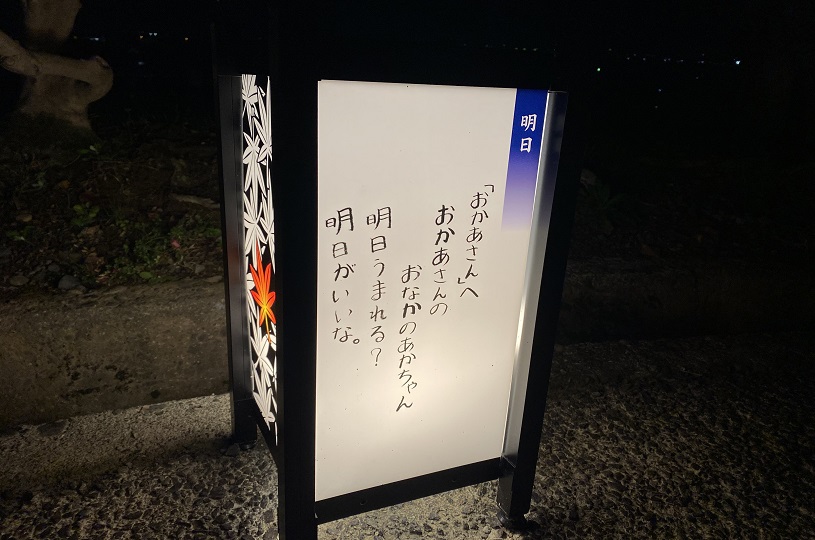 明日
「おかあさん」へ
おかあさんの
おなかのあかちゃん
明日うまれる?
明日がいいな。